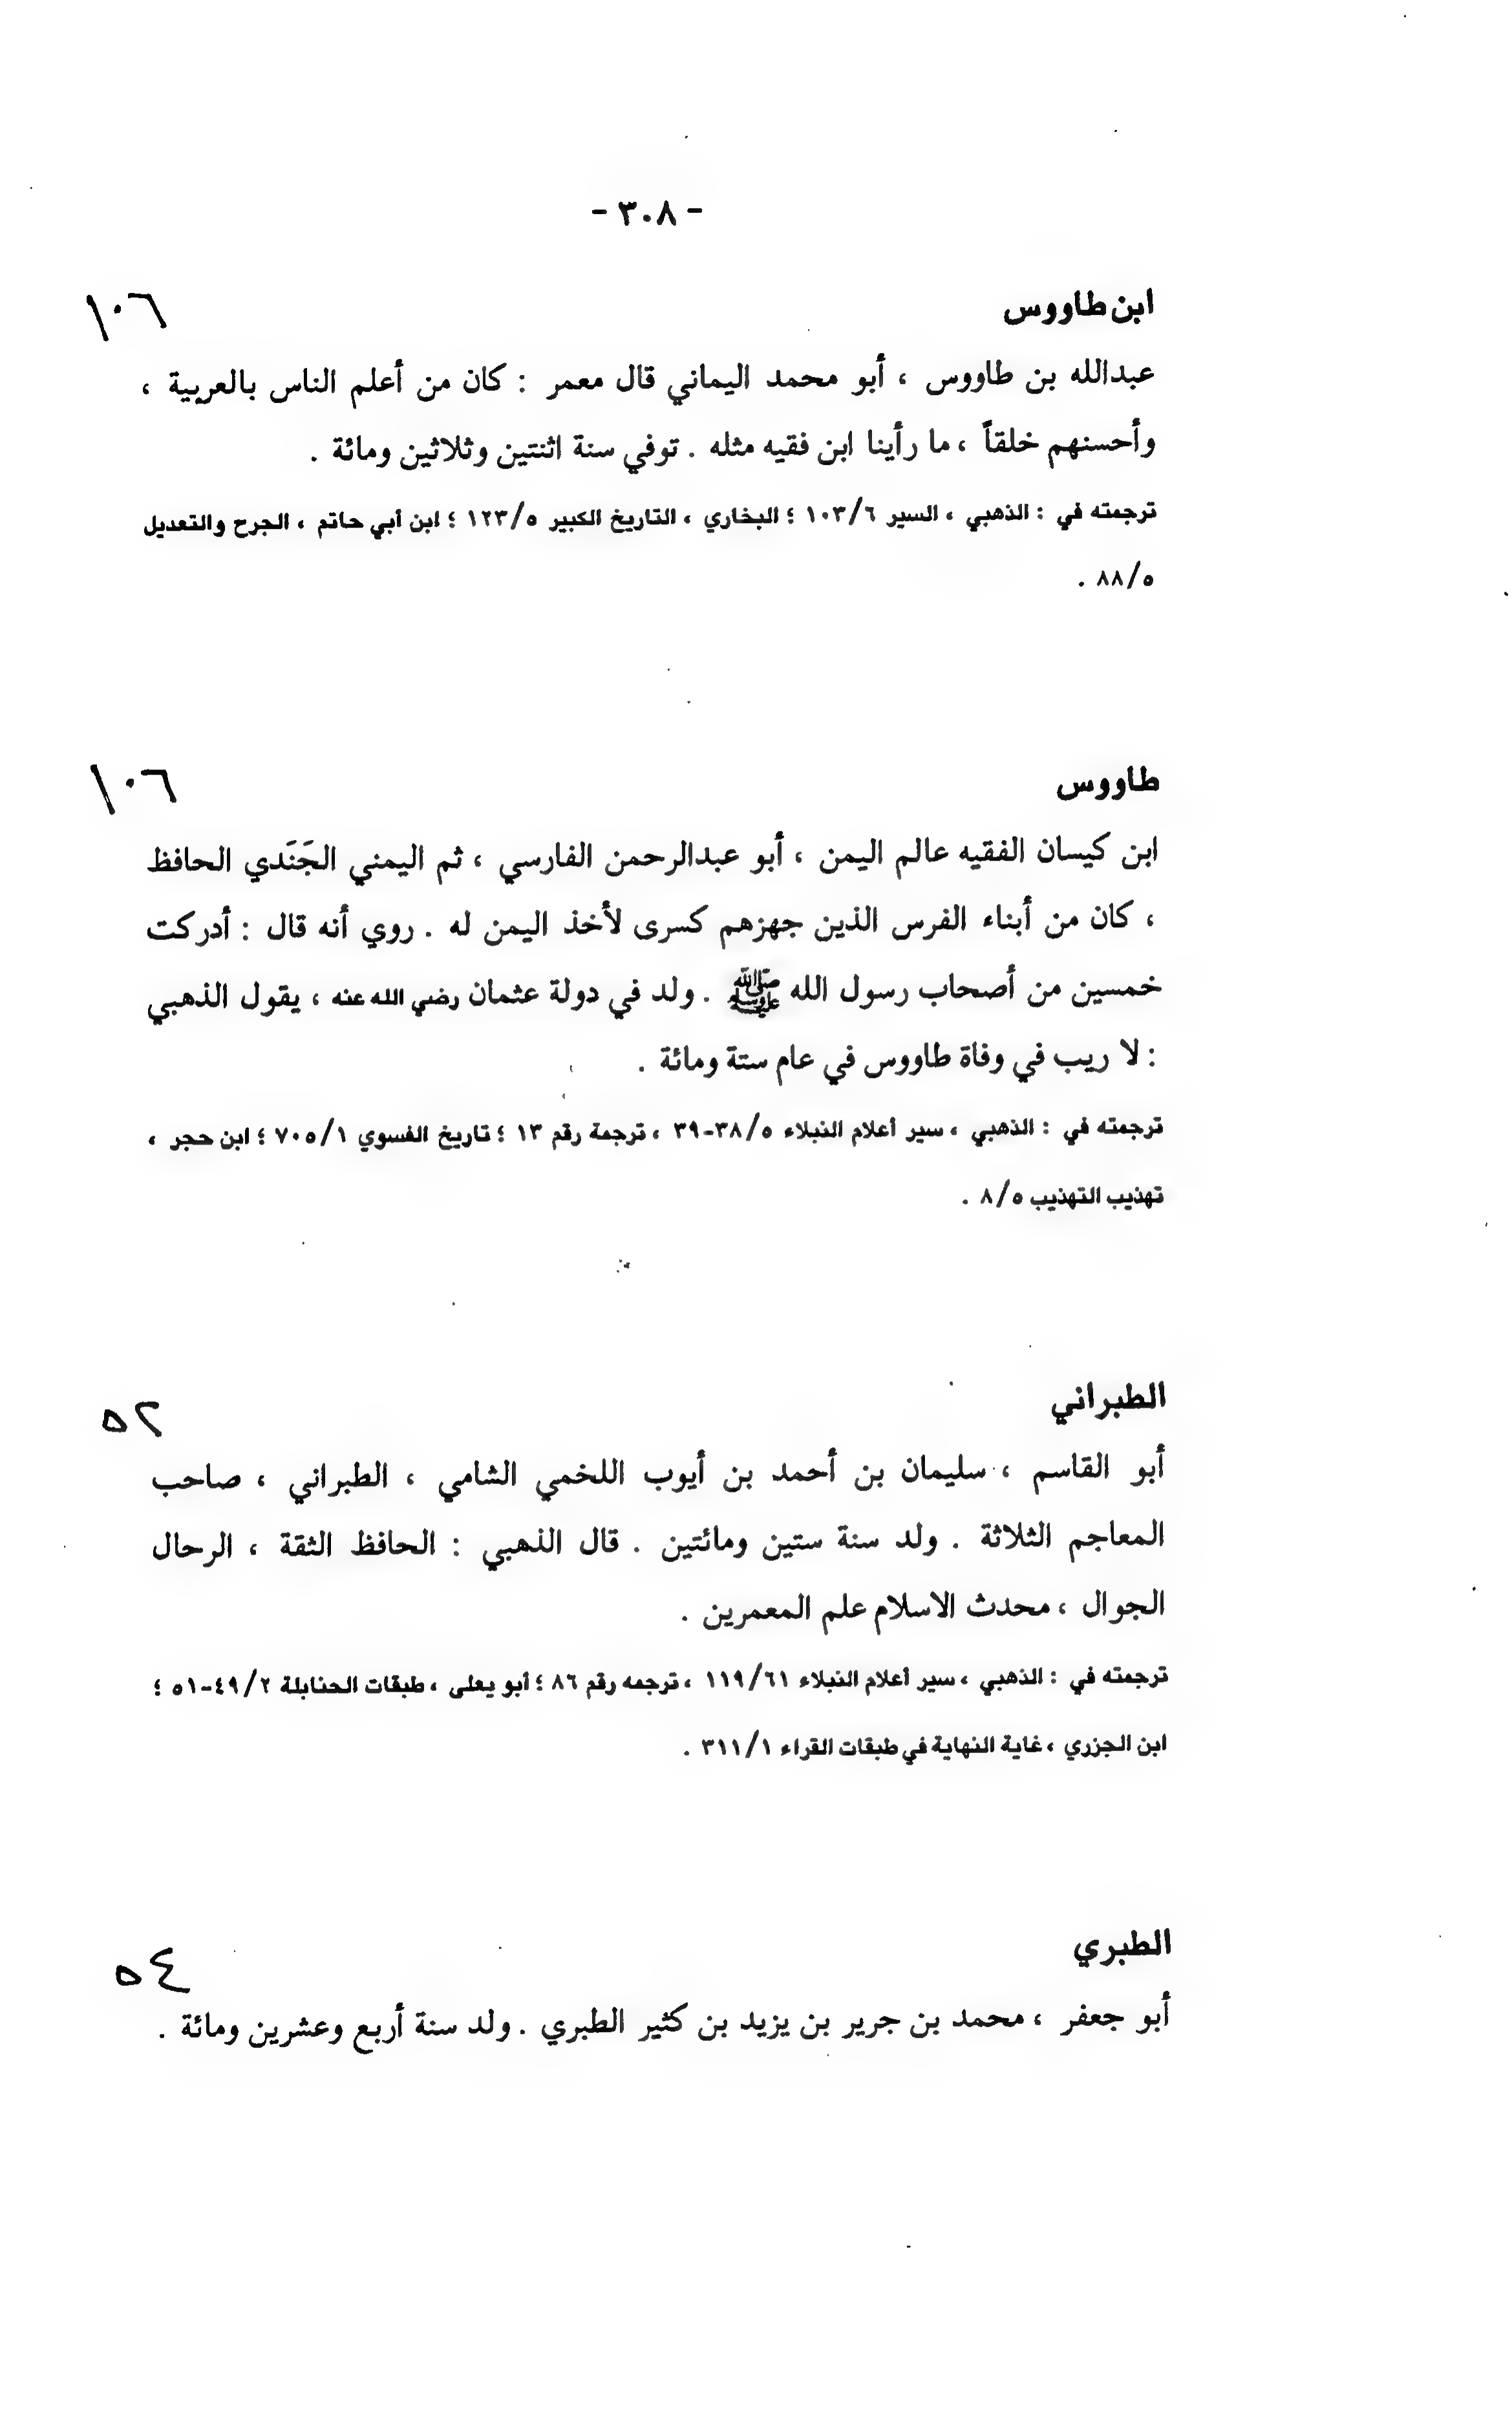 - ٣٠٨ -
ابن طاووس ١٠٦
عبدالله بن طاووس ، أبو محمد اليماني قال معمر : كان من أعلم الناس بالعربية ،
وأحسنهم خلقاً ، ما رأينا ابن فقيه مثله . توفي سنة اثنتين وثلاثين ومائة .
ترجمته في : الذهبي ، السير ١٠٣/٦ ؛ البخاري ، التاريخ الكبير ١٢٣/٥ ؛ ابن أبي حاتم ، الجرح والتعديل
٨٨/٥ .
طاووس ١٠٦
ابن كيسان الفقيه عالم اليمن ، أبو عبدالرحمن الفارسي ، ثم اليمني الجَنَدي الحافظ
، كان من أبناء الفرس الذين جهزهم كسرى لأخذ اليمن له . روي أنه قال : أدركت
خمسين من أصحاب رسول الله ﷺ . ولد في دولة عثمان رضي الله عنه ، يقول الذهبي
: لا ريب في وفاة طاووس في عام ستة ومائة .
ترجمته في : الذهبي ، سير أعلام النبلاء ٣٨/٥-٣٩ ، ترجمة رقم ١٣ ؛ تاريخ الفسوي ٧٠٥/١ ؛ ابن حجر ،
تهذيب التهذيب ٨/٥ .
الطبراني ٥٢
أبو القاسم ، سليمان بن أحمد بن أيوب اللخمي الشامي ، الطبراني ، صاحب
المعاجم الثلاثة . ولد سنة ستين ومائتين . قال الذهبي : الحافظ الثقة ، الرحال
الجوال ، محدث الاسلام علم المعمرين .
ترجمته في : الذهبي ، سير أعلام النبلاء ١١٩/٦١ ، ترجمه رقم ٨٦ ؛ أبو يعلى ، طبقات الحنابلة ٤٩/٢-٥١ ؛
ابن الجزري ، غاية النهاية في طبقات القراء ٣١١/١ .
الطبري ٥٤
أبو جعفر ، محمد بن جرير بن يزيد بن كثير الطبري . ولد سنة أربع وعشرين ومائة .